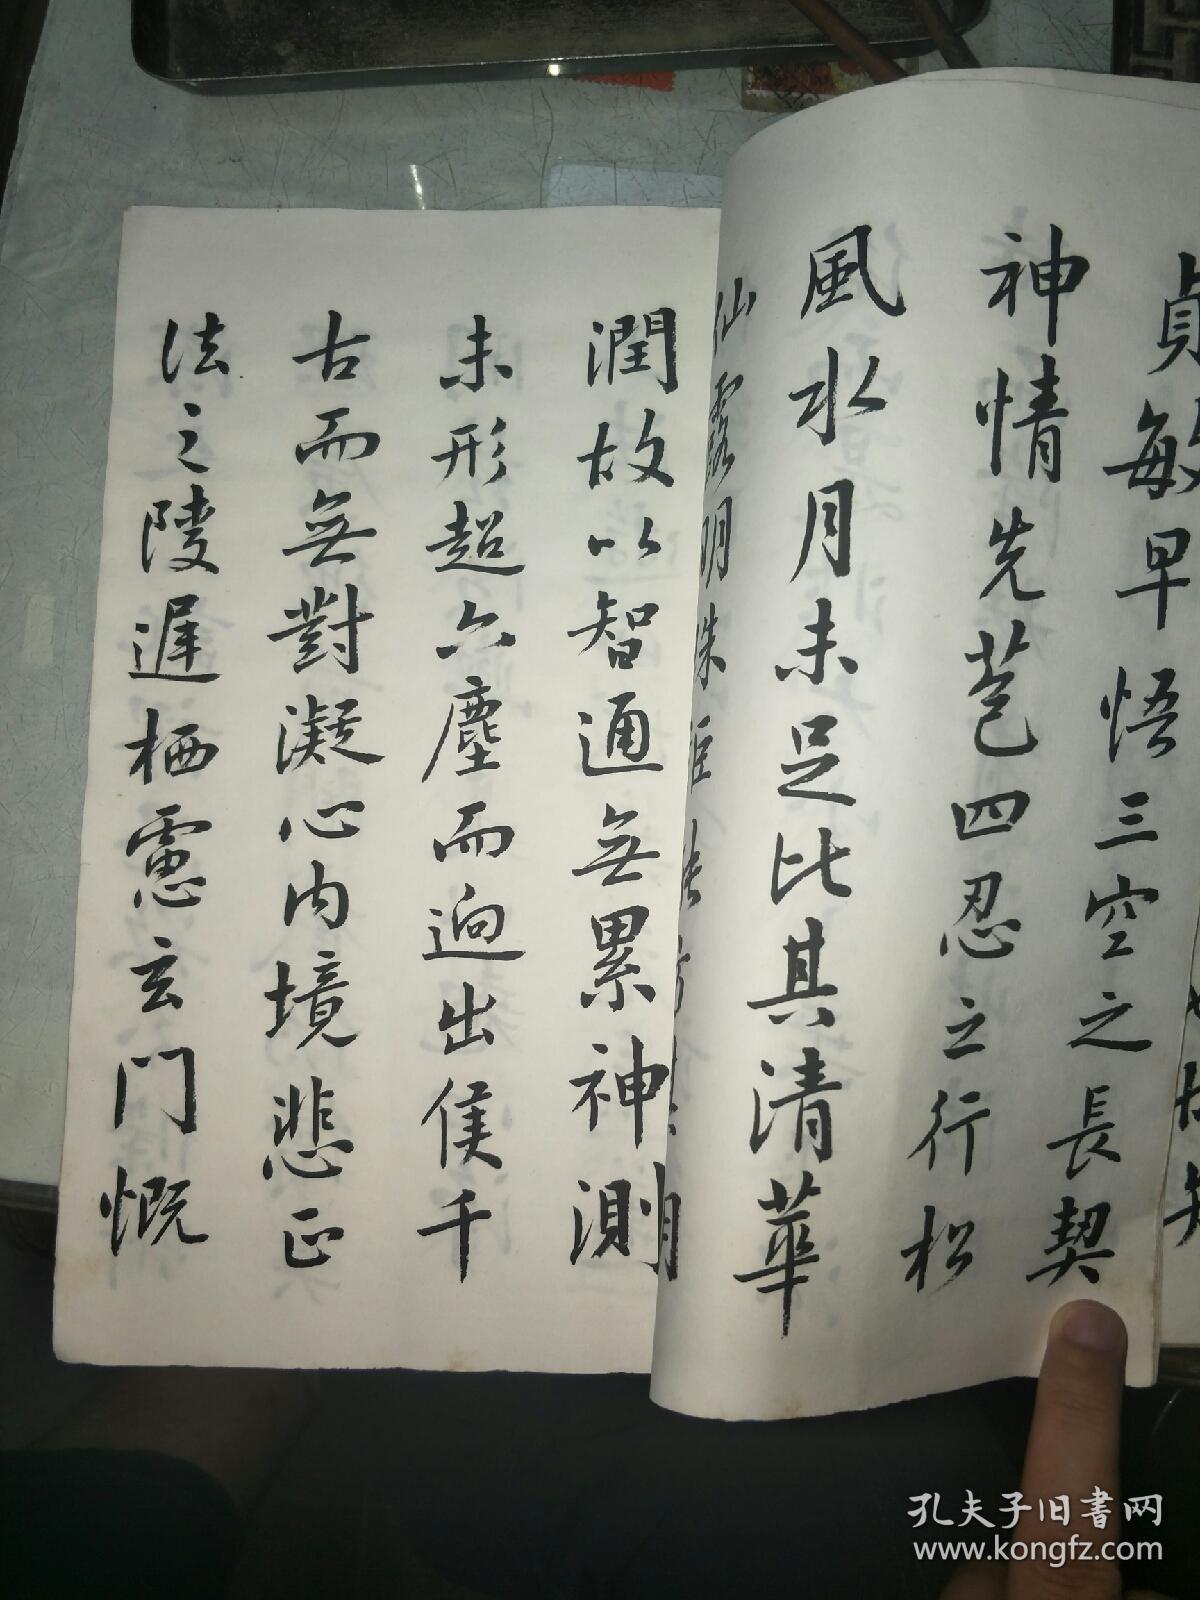 貞敏早悟三空之長契
神情先苞四忍之行松
風水月未足比其清華
仙露明珠
潤故以智通無累神測
未形超六塵而迥出侯千
古而無對凝心內境悲正
法之陵遲栖慮玄門慨
孔夫子旧書网
www.kongfz.com